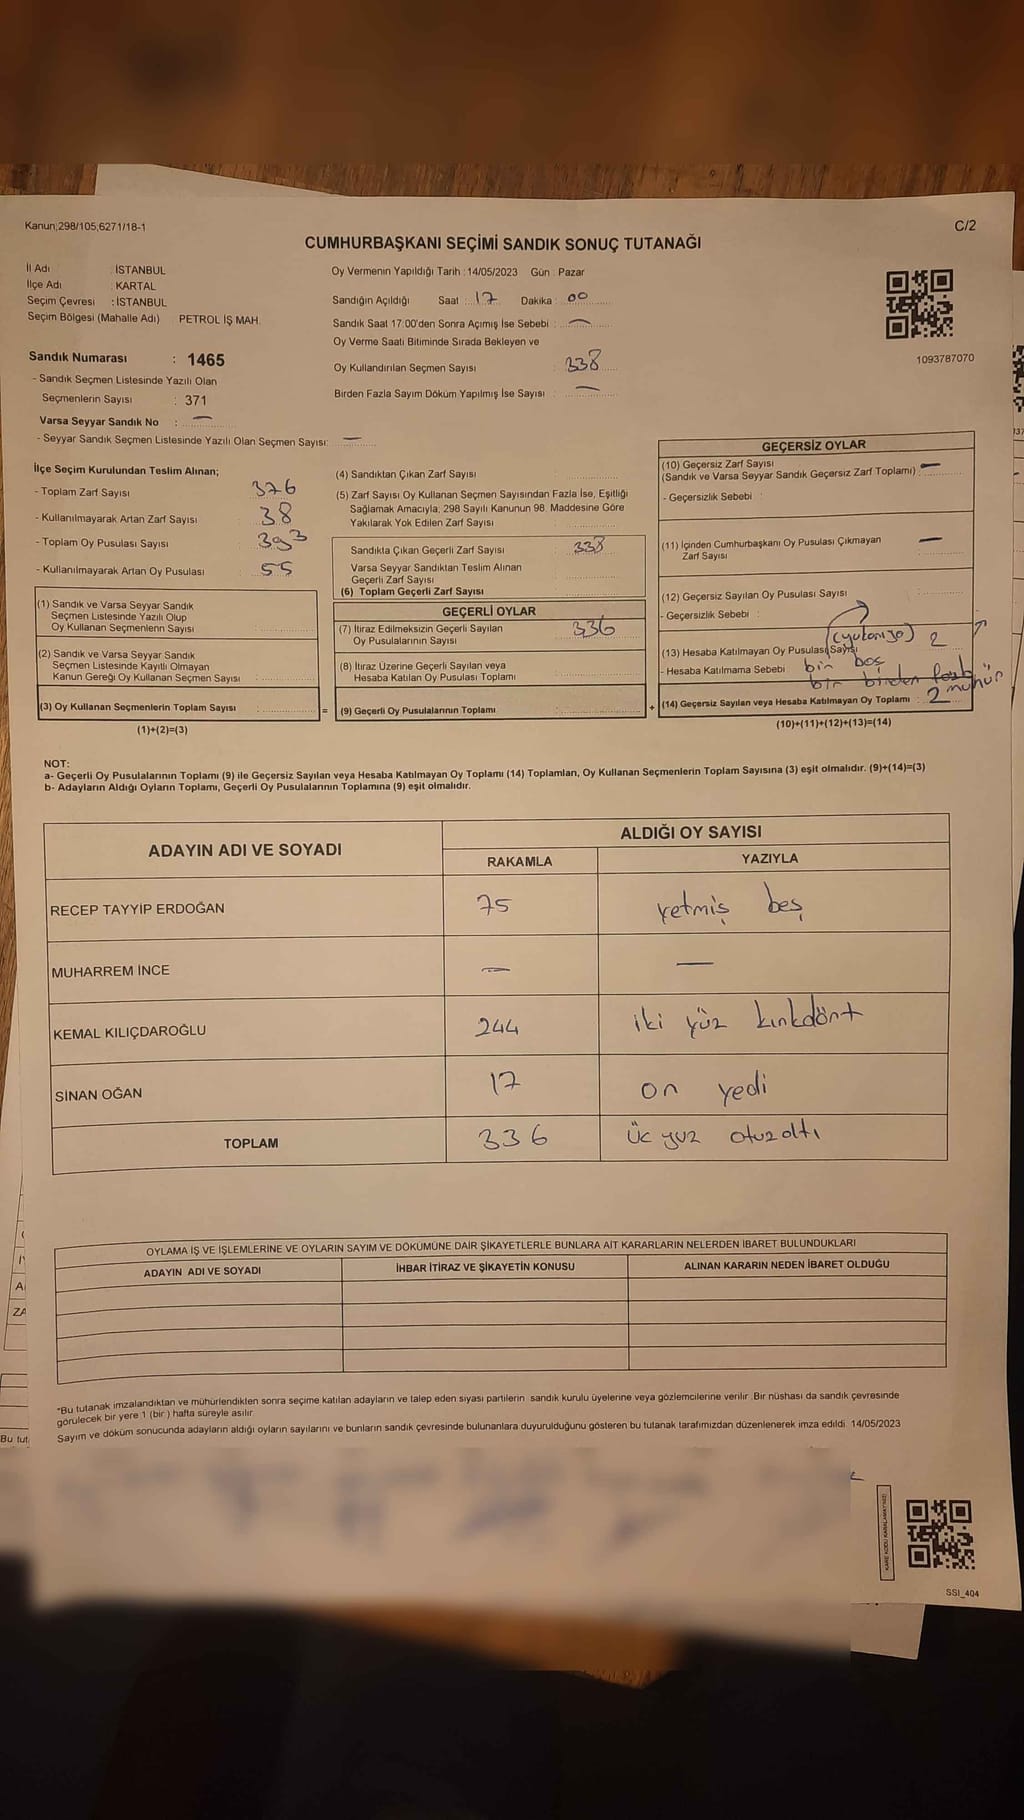 Kanun;298/105,6271/18-1
C/2
CUMHURBAŞKANI SEÇİMİ SANDIK SONUÇ TUTANAĞI
İl Adı : İSTANBUL
İlçe Adı : KARTAL
Seçim Çevresi : İSTANBUL
Seçim Bölgesi (Mahalle Adı) PETROL İŞ MAH.
Oy Vermenin Yapıldığı Tarih : 14/05/2023 Gün : Pazar
Sandığın Açıldığı Saat : 17 Dakika : 00
Sandık Saat 17:00'den Sonra Açımış İse Sebebi : —
Oy Verme Saati Bitiminde Sırada Bekleyen ve
Oy Kullandırılan Seçmen Sayısı : 338
Birden Fazla Sayım Döküm Yapılmış İse Sayısı : —
1093787070
Sandık Numarası : 1465
- Sandık Seçmen Listesinde Yazılı Olan
Seçmenlerin Sayısı : 371
Varsa Seyyar Sandık No : —
- Seyyar Sandık Seçmen Listesinde Yazılı Olan Seçmen Sayısı: —
İlçe Seçim Kurulundan Teslim Alınan;
- Toplam Zarf Sayısı 376
- Kullanılmayarak Artan Zarf Sayısı 38
- Toplam Oy Pusulası Sayısı 393
- Kullanılmayarak Artan Oy Pusulası 55
(1) Sandık ve Varsa Seyyar Sandık
Seçmen Listesinde Yazılı Olup
Oy Kullanan Seçmenlerin Sayısı
(2) Sandık ve Varsa Seyyar Sandık
Seçmen Listesinde Kayıtlı Olmayan
Kanun Gereği Oy Kullanan Seçmen Sayısı
(3) Oy Kullanan Seçmenlerin Toplam Sayısı =
(1)+(2)=(3)
(4) Sandıktan Çıkan Zarf Sayısı
(5) Zarf Sayısı Oy Kullanan Seçmen Sayısından Fazla İse, Eşitliği
Sağlamak Amacıyla, 298 Sayılı Kanunun 98. Maddesine Göre
Yakılarak Yok Edilen Zarf Sayısı
Sandıkta Çıkan Geçerli Zarf Sayısı 338
Varsa Seyyar Sandıktan Teslim Alınan
Geçerli Zarf Sayısı
(6) Toplam Geçerli Zarf Sayısı
GEÇERLİ OYLAR
(7) İtiraz Edilmeksizin Geçerli Sayılan 336
Oy Pusulalarının Sayısı
(8) İtiraz Üzerine Geçerli Sayılan veya
Hesaba Katılan Oy Pusulası Toplamı
(9) Geçerli Oy Pusulalarının Toplamı +
GEÇERSİZ OYLAR
(10) Geçersiz Zarf Sayısı —
(Sandık ve Varsa Seyyar Sandık Geçersiz Zarf Toplamı)
- Geçersizlik Sebebi :
(11) İçinden Cumhurbaşkanı Oy Pusulası Çıkmayan —
Zarf Sayısı
(12) Geçersiz Sayılan Oy Pusulası Sayısı
- Geçersizlik Sebebi :
(yukarıya) 2
(13) Hesaba Katılmayan Oy Pusulası Sayısı
- Hesaba Katılmama Sebebi bin boş
bir birden fazla mühür
(14) Geçersiz Sayılan veya Hesaba Katılmayan Oy Toplamı : 2
(10)+(11)+(12)+(13)=(14)
NOT:
a- Geçerli Oy Pusulalarının Toplamı (9) ile Geçersiz Sayılan veya Hesaba Katılmayan Oy Toplamı (14) Toplamları, Oy Kullanan Seçmenlerin Toplam Sayısına (3) eşit olmalıdır. (9)+(14)=(3)
b- Adayların Aldığı Oyların Toplamı, Geçerli Oy Pusulalarının Toplamına (9) eşit olmalıdır.
ADAYIN ADI VE SOYADI
ALDIĞI OY SAYISI
RAKAMLA YAZIYLA
RECEP TAYYİP ERDOĞAN 75 yetmiş beş
MUHARREM İNCE — —
KEMAL KILIÇDAROĞLU 244 iki yüz kırkdört
SİNAN OĞAN 17 on yedi
TOPLAM 336 üç yuz otuzaltı
OYLAMA İŞ VE İŞLEMLERİNE VE OYLARIN SAYIM VE DÖKÜMÜNE DAİR ŞİKAYETLERLE BUNLARA AİT KARARLARIN NELERDEN İBARET BULUNDUKLARI
ADAYIN ADI VE SOYADI İHBAR İTİRAZ VE ŞİKAYETİN KONUSU ALINAN KARARIN NEDEN İBARET OLDUĞU
*Bu tutanak imzalandıktan ve mühürlendikten sonra seçime katılan adayların ve talep eden siyasi partilerin sandık kurulu üyelerine veya gözlemcilerine verilir. Bir nüshası da sandık çevresinde
görülecek bir yere 1 (bir) hafta süreyle asılır.
Sayım ve döküm sonucunda adayların aldığı oyların sayılarını ve bunların sandık çevresinde bulunanlara duyurulduğunu gösteren bu tutanak tarafımızdan düzenlenerek imza edildi. 14/05/2023
Bu tut
KARE KODU KARALAMAYINIZ!
SSI_404